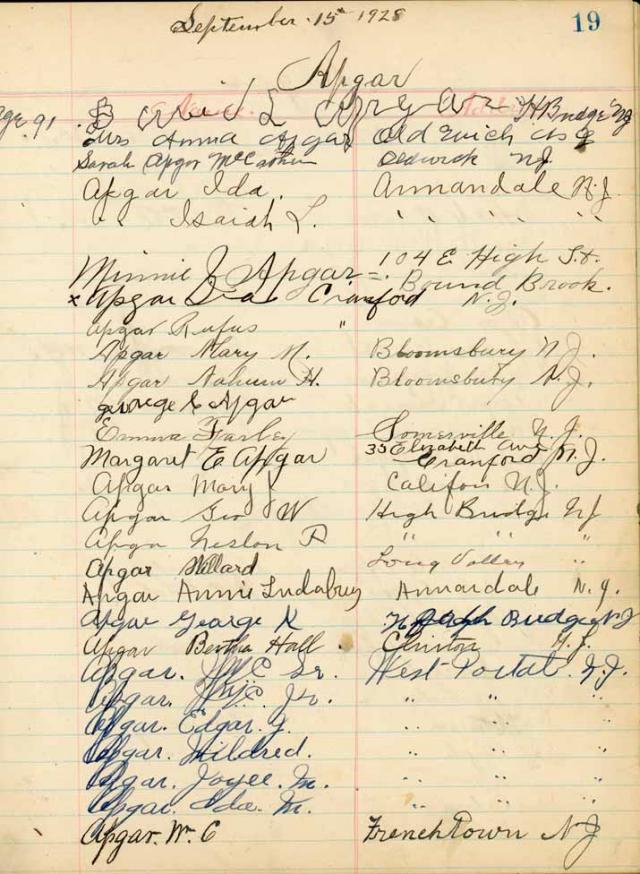 September 15th 1928
19
Apgar
Page 91
David L Apgar H Bridge NJ
Mrs Anna Apgar Oldwick NJ
Sarah Apgar McCathern Oldwick NJ
Apgar Ida. Annandale N.J.
" Isaiah L. " " " "
Minnie J Apgar - 104 E High St.
Bound Brook.
x Apgar Ira Cranford N.J.
Apgar Rufus "
Apgar Mary M. Bloomsbury N.J.
Apgar Nahum H. Bloomsbury N.J.
George E Apgar
Emma Farley Somerville N.J.
Margaret E Apgar 35 Elizabeth Ave
Cranford N.J.
Apgar Mary J Califon N.J.
Apgar Geo W High Bridge NJ
Apgar R " "
Apgar Willard Long Valley "
Apgar Annie Lindabury Annandale N.J.
Apgar George K High Bridge NJ
Apgar Bertha Hall. Clinton N.J.
Apgar. Sr. West Portal. N.J.
Apgar. Jr. " " "
Apgar. Edgar. " " "
Apgar. Mildred. " " "
Apgar. Joyce. M. " " "
Apgar. Ida. M. " " "
Apgar. W. C Frenchtown N J